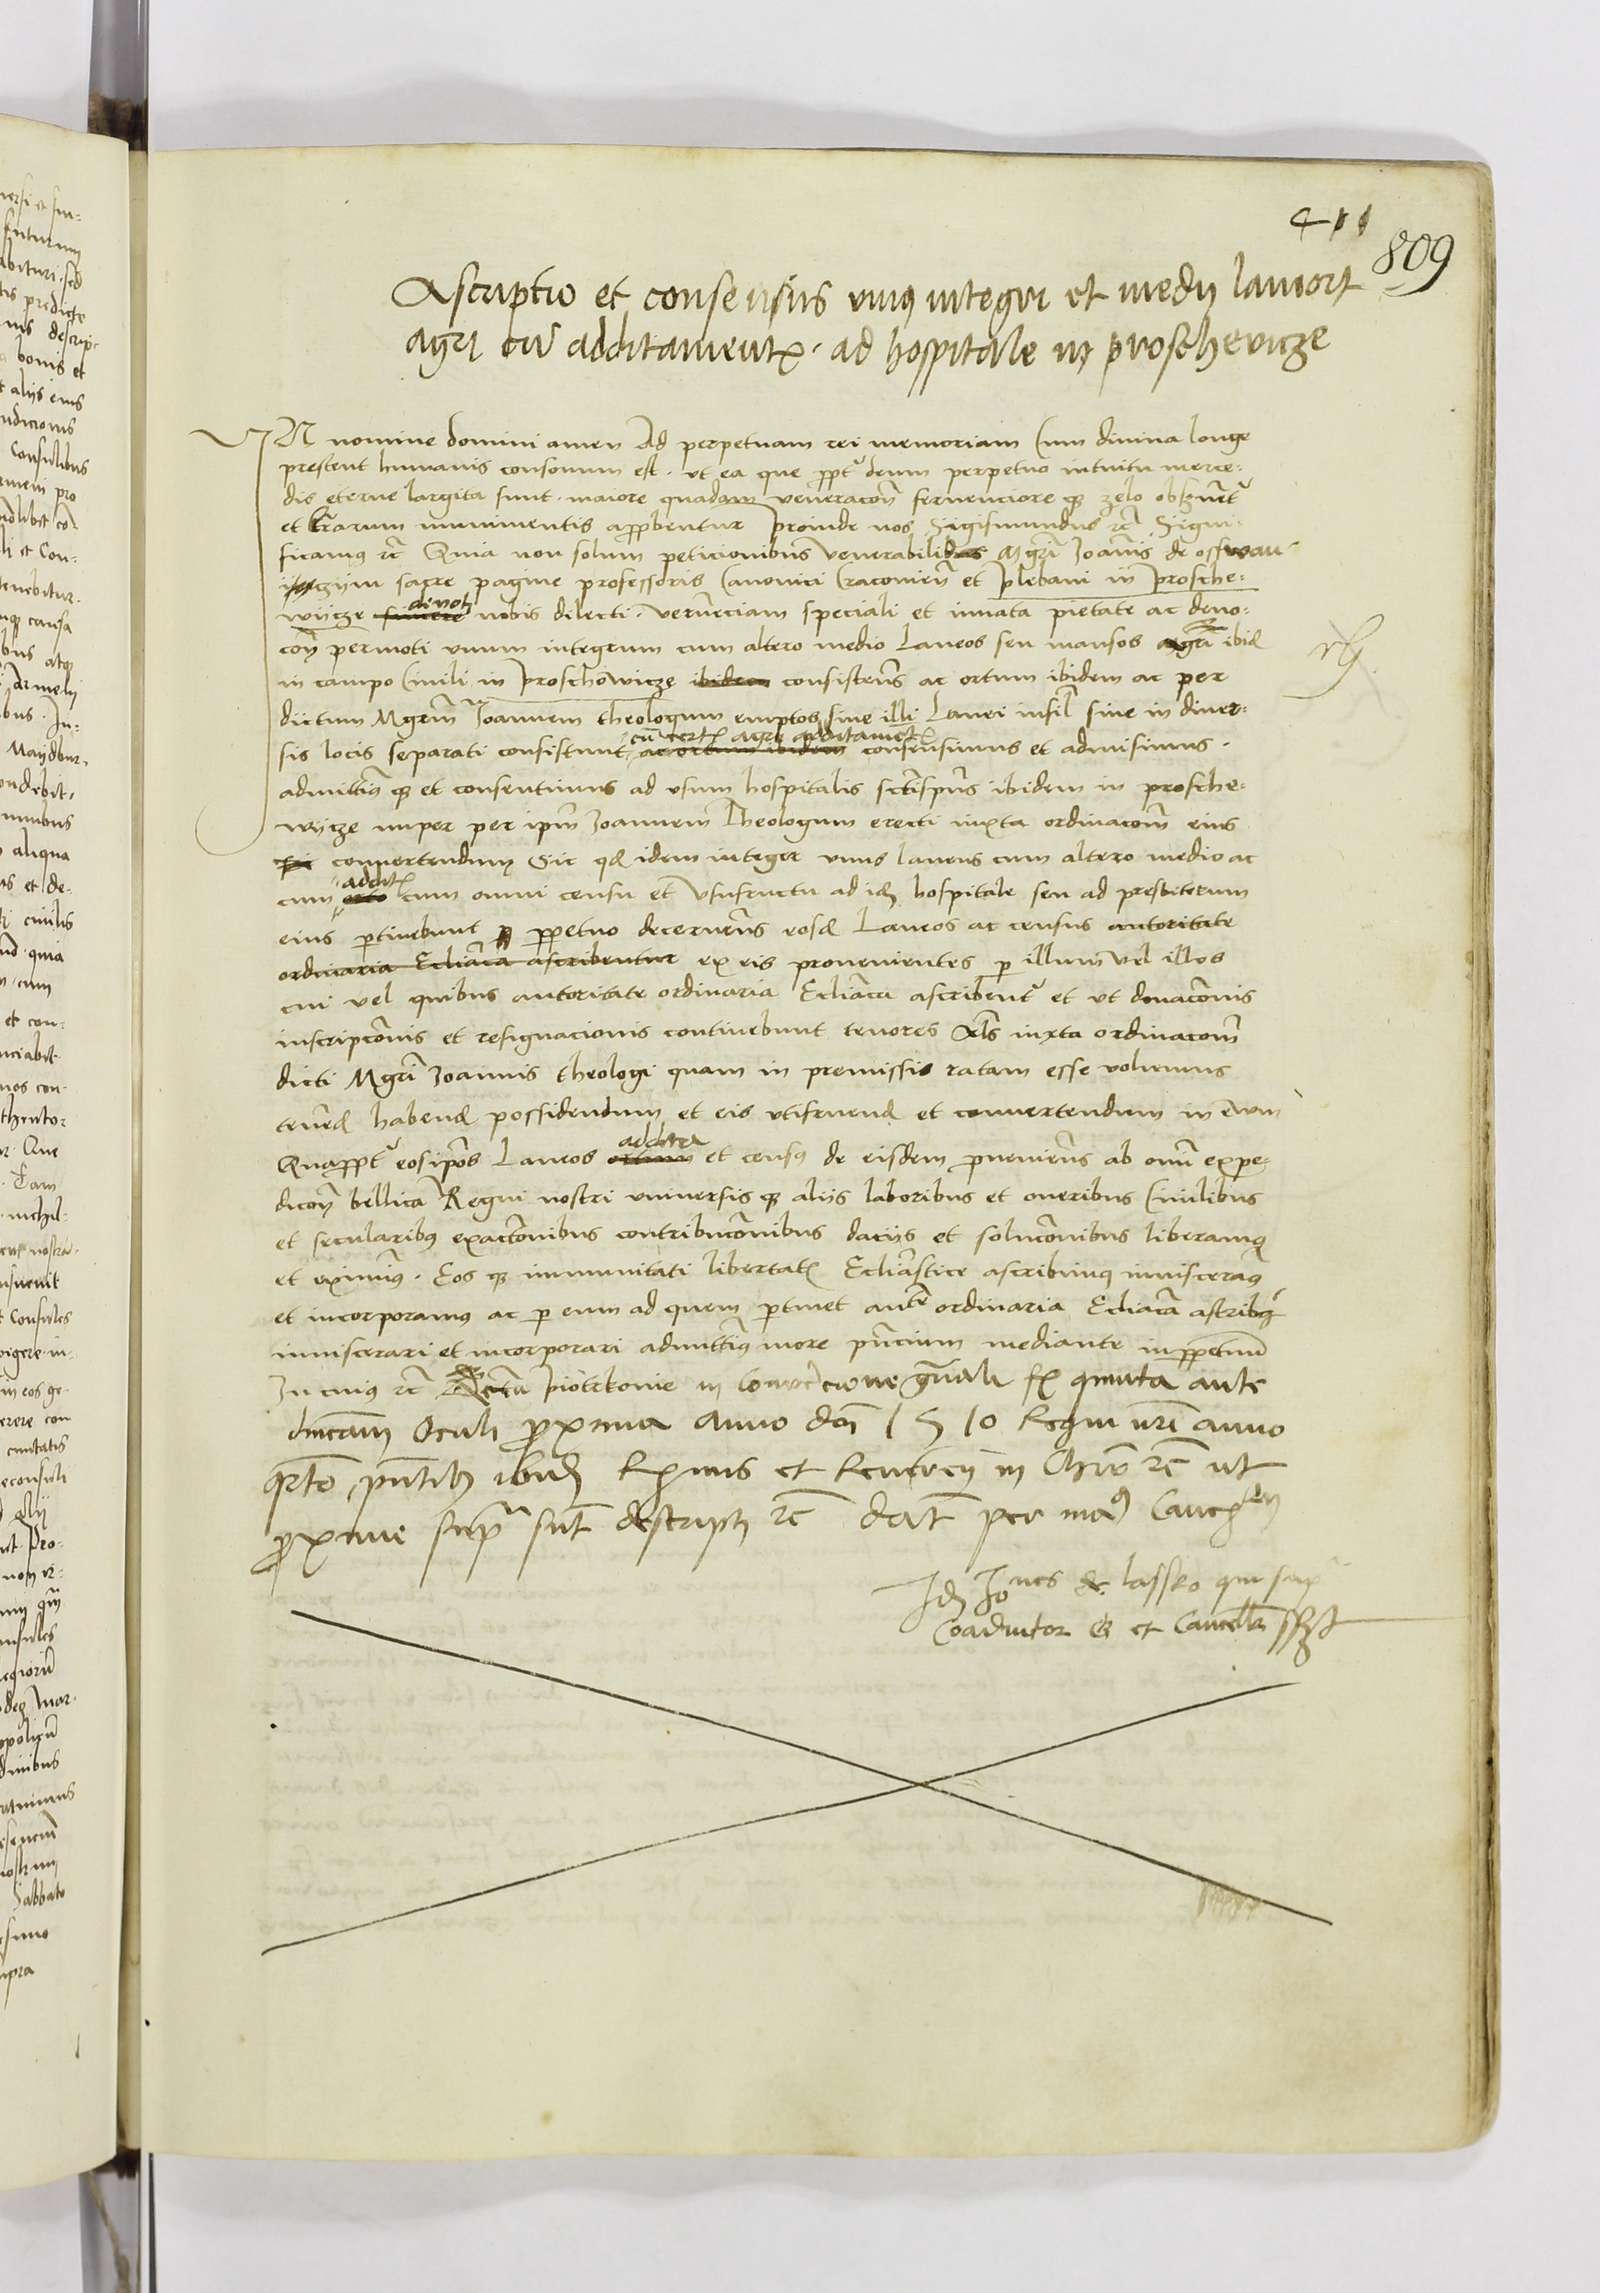 411
809
Ascriptio et consensus unius integri et medii laneorum
agri cum additamentis ad hospitale in proschevicze
IN nomine domini amen Ad perpetuam rei memoriam Cum divina longe
prestent humanis consonum est ut ea que propter deum perpetuo intuitu merce=
dis eterne largita sunt maiore quadam veneracone fervenciore que zelo observentur
et literarum munimentis approbentur Proinde nos Sigismundus etc Signi=
ficamus etc Quia non solum peticionibus venerabilis Mgri Joannis de
sacre pagine professoris Canonici Cracoviens et Plebani in prosche=
wycze devoti nobis dilecti verumeciam speciali et innata pietate ac devo=
cone permoti unum integrum cum altero medio Laneos seu mansos agri ibidem
in campo Civili in proschowicze ibidem consistens ac ortum ibidem ac per
dictum Mgrum Joannem theologum emptos sive illi Lanei insimul sive in diver=
sis locis separati consistunt cum certis agri additamentis ac ortum ibidem consensimus et admisimus
admittimus que et consentimus ad usum hospitalis scti spus ibidem in prosche=
wycze nuper per ipm Joannem Theologum erecti iuxta ordinacom eius
convertendum Sic quod idem integer unus laneus cum altero medio ac
cum addit cum omni censu et usufructu ad idem hospitale seu ad presbiterum
eius ptinebunt perpetuo decernens eosdem Laneos ac census autoritate
ordinaria Ecliastica ascribentur ex eis provenientes p illum vel illos
cui vel quibus autoritate ordinaria Ecliastica ascribentur et ut donaconis
inscripconis et resignacionis continebunt tenores iuxta ordinacom
dicti Mgri Joannis theologi quam in premissis ratam esse volumus
tenend habend possidendum et eis utifruend et convertendum in evum
Quapropter eos ipos Laneos addita et census de eisdem proveniens ab omni expe=
dicone bellica Regni nostri universis que aliis laboribus et oneribus Civilibus
et secularibus exactonibus contribuconibus daciis et soluconibus liberamus
et eximimus Eos que immunitati libertati Ecliastice ascribimus invisceramus
et incorporamus ac p eum ad quem ptinet autte ordinaria Ecliastica ascribi
inviscerari et incorporari admittimus more pncium mediante in perpetuum
In cuius etc Actum Piotrkovie in Convencione gnali f quinta ante
dnicam Oculi proxima Anno dni 1510 Regni nri anno
qrto pntibus ibidem Rmis et Revdis in Christo etc ut
proxime supra sunt descripti etc Dat per manus Cancell
Idem Joannes de lassko qui supra
Coadiutor et Cancell sst